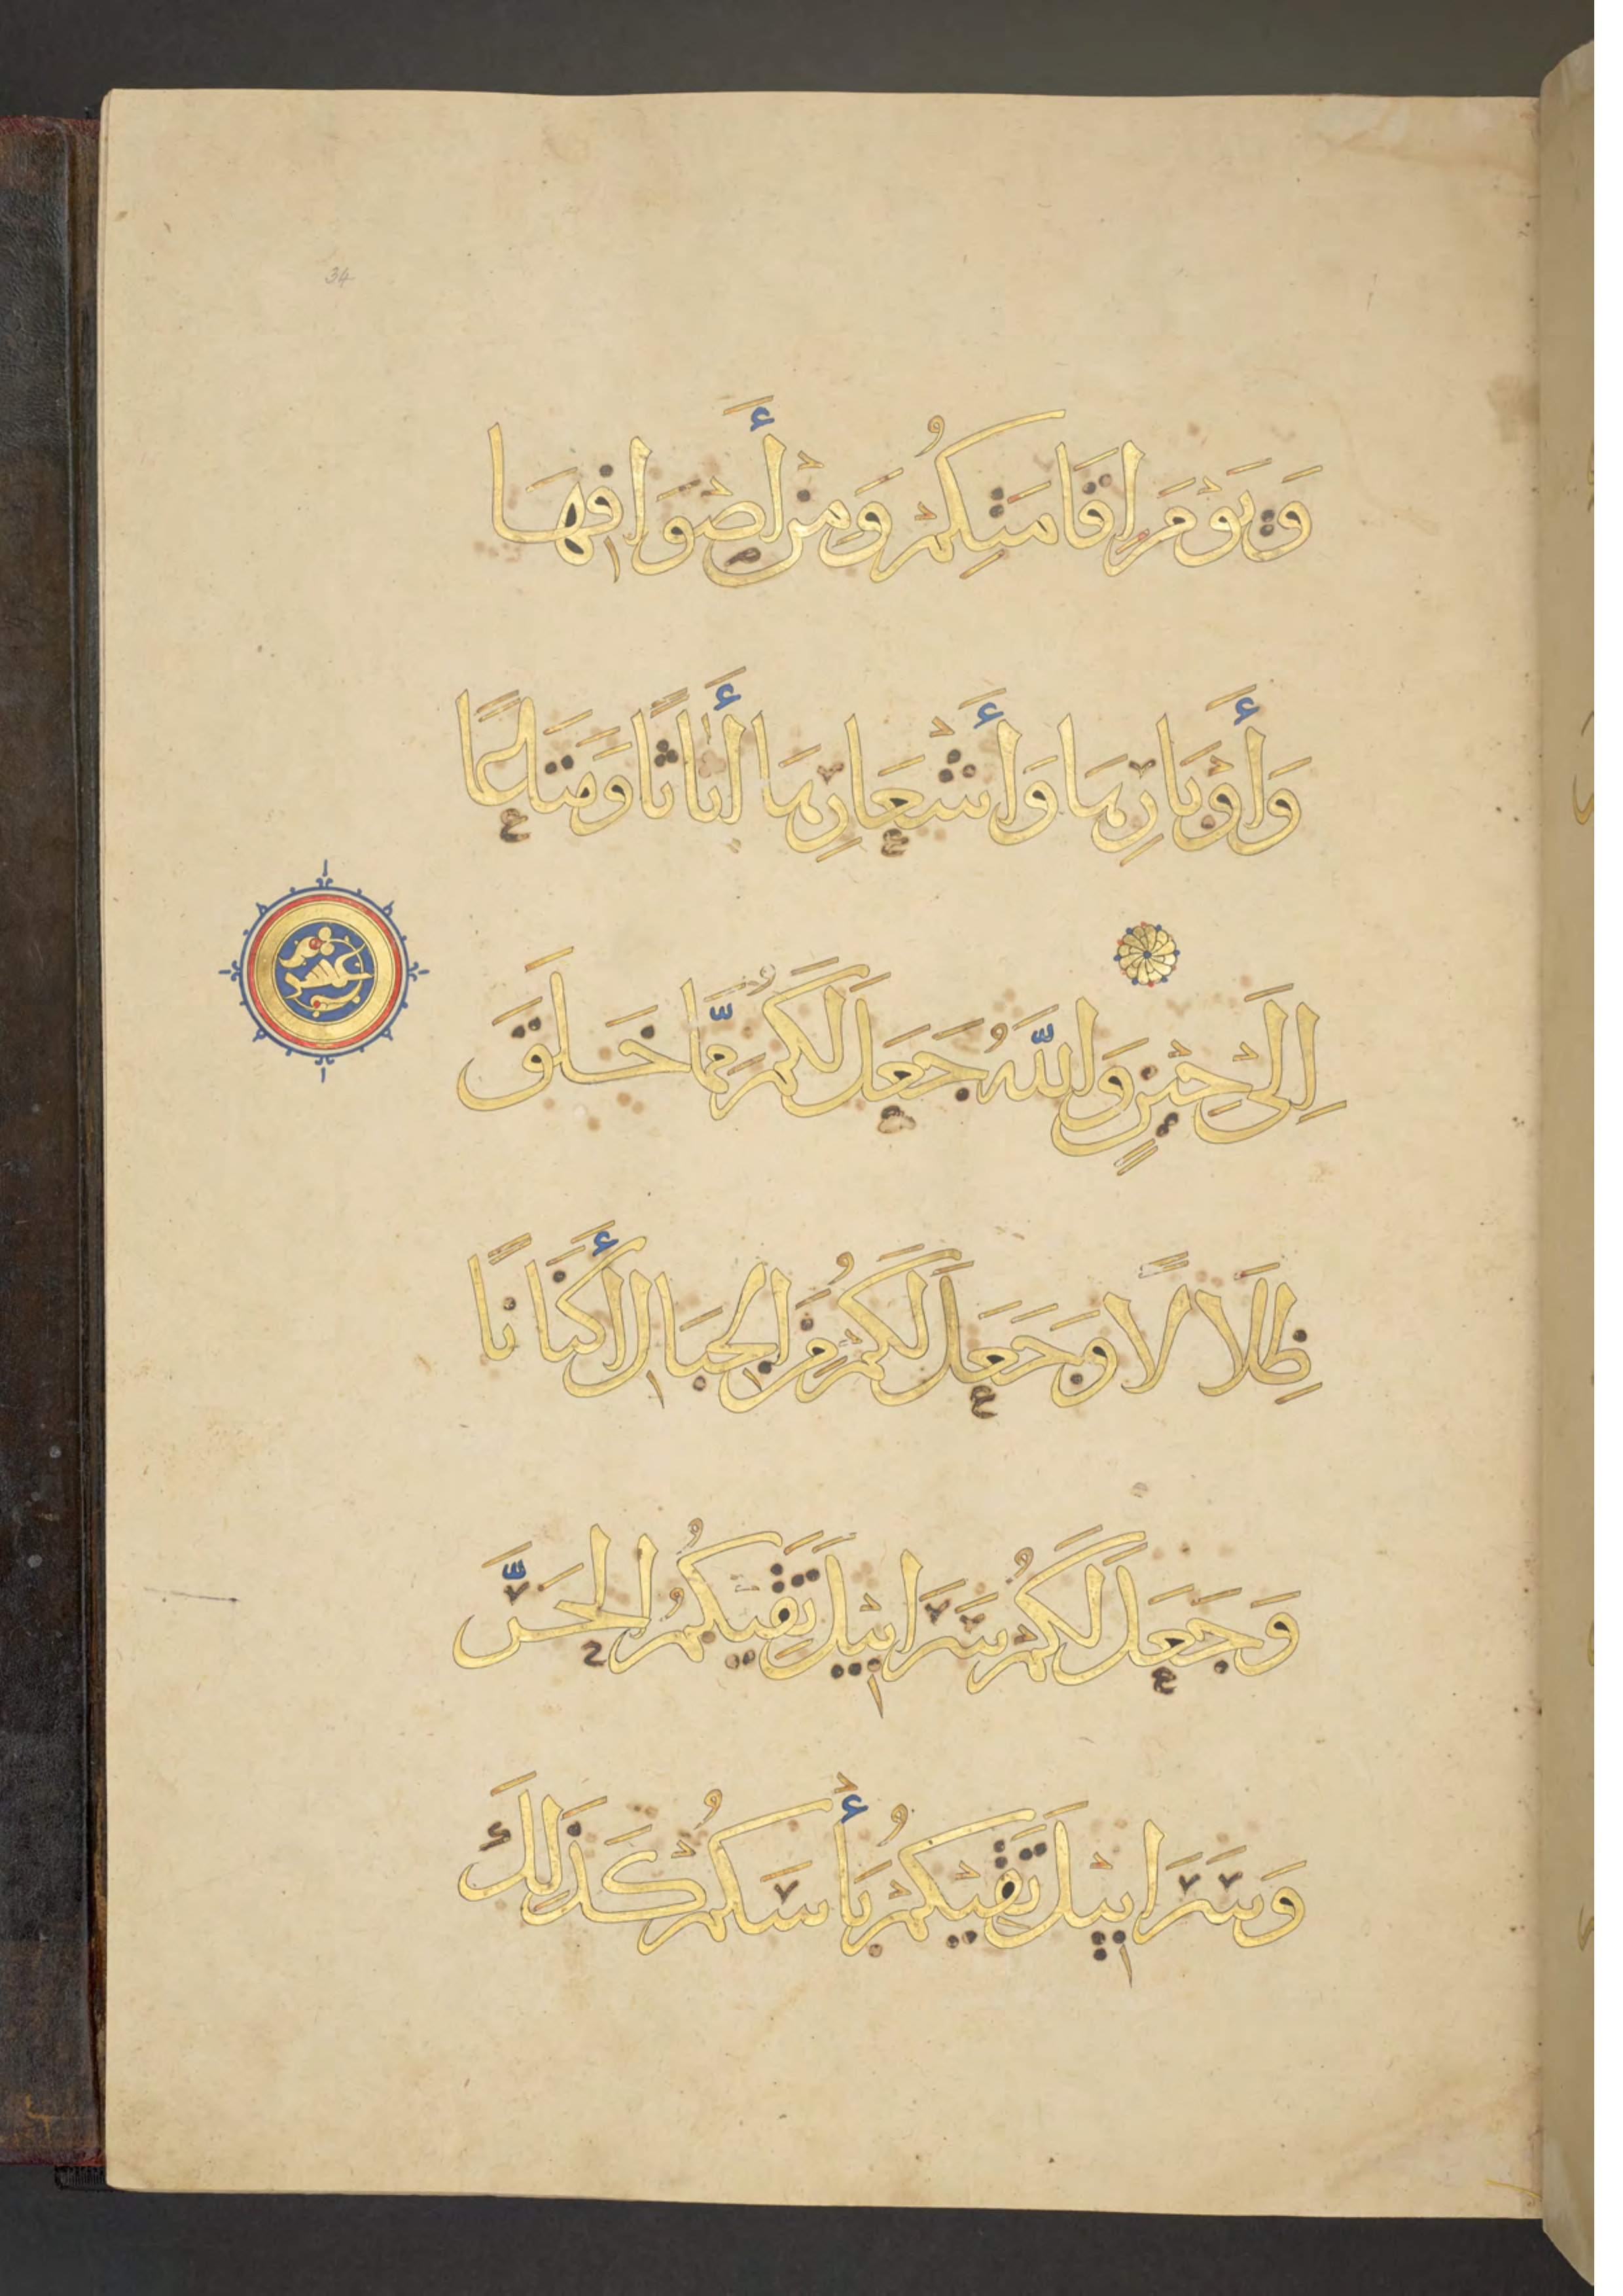 34
وَيَوْمَ اِقَامَتِكُمْ وَمِنْ أَصْوَافِهَا
وَأَوْبَارِهَا وَأَشْعَارِهَا أَثَاثًا وَمَتَاعًا
اِلَىٰ حِيْنٍ وَاللّٰهُ جَعَلَ لَكُمْ مِمَّا خَلَقَ
ظِلَالًا وَجَعَلَ لَكُمْ مِنَ الجِبَالِ أَكْنَانًا
وَجَعَلَ لَكُمْ سَرَابِيْلَ تَقِيْكُمُ الحَرَّ
وَسَرَابِيْلَ تَقِيْكُمْ بَأْسَكُمْ كَذَلِكَ